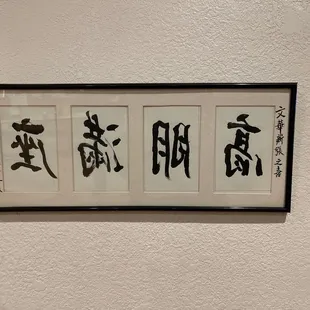 文華新張之喜
高朋滿座